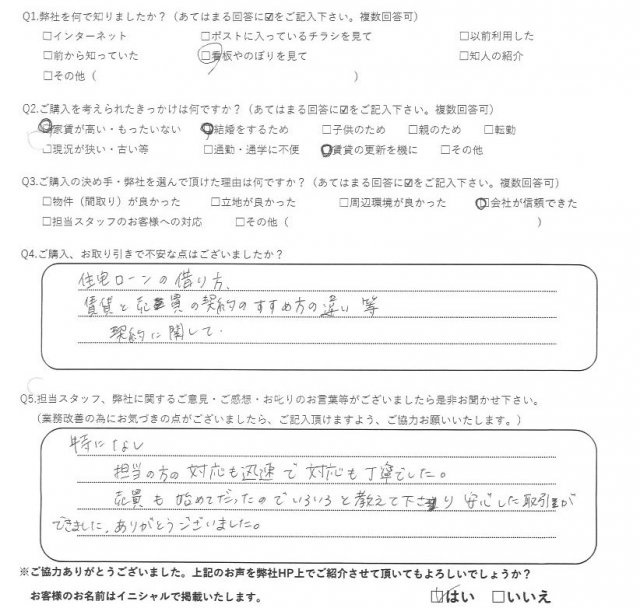 Q1.弊社を何で知りましたか？（あてはまる回答に☑をご記入下さい。複数回答可）
□インターネット □ポストに入っているチラシを見て □以前利用した
□前から知っていた □看板やのぼりを見て □知人の紹介
□その他（ ）
Q2.ご購入を考えられたきっかけは何ですか？（あてはまる回答に☑をご記入下さい。複数回答可）
□家賃が高い・もったいない □結婚をするため □子供のため □親のため □転勤
□現況が狭い・古い等 □通勤・通学に不便 □賃貸の更新を機に □その他
Q3.ご購入の決め手・弊社を選んで頂けた理由は何ですか？（あてはまる回答に☑をご記入下さい。複数回答可）
□物件（間取り）が良かった □立地が良かった □周辺環境が良かった □会社が信頼できた
□担当スタッフのお客様への対応 □その他（ ）
Q4.ご購入、お取り引きで不安な点はございましたか？
住宅ローンの借り方、
賃貸と売買の契約のすすめ方の違い 等
契約に関して.
Q5.担当スタッフ、弊社に関するご意見・ご感想・お叱りのお言葉等がございましたら是非お聞かせ下さい。
（業務改善の為にお気づきの点がございましたら、ご記入頂けますよう、ご協力お願いいたします。）
特になし
担当の方の対応も迅速で対応も丁寧でした。
売買も始めてだったのでいろいろと教えて下さり 安心した取引が
できました、ありがとうございました。
※ご協力ありがとうございました。上記のお声を弊社HP上でご紹介させて頂いてもよろしいでしょうか？
お客様のお名前はイニシャルで掲載いたします。 □はい □いいえ